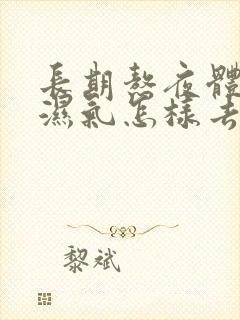 長期熬夜體
濕氣怎樣去
黎斌